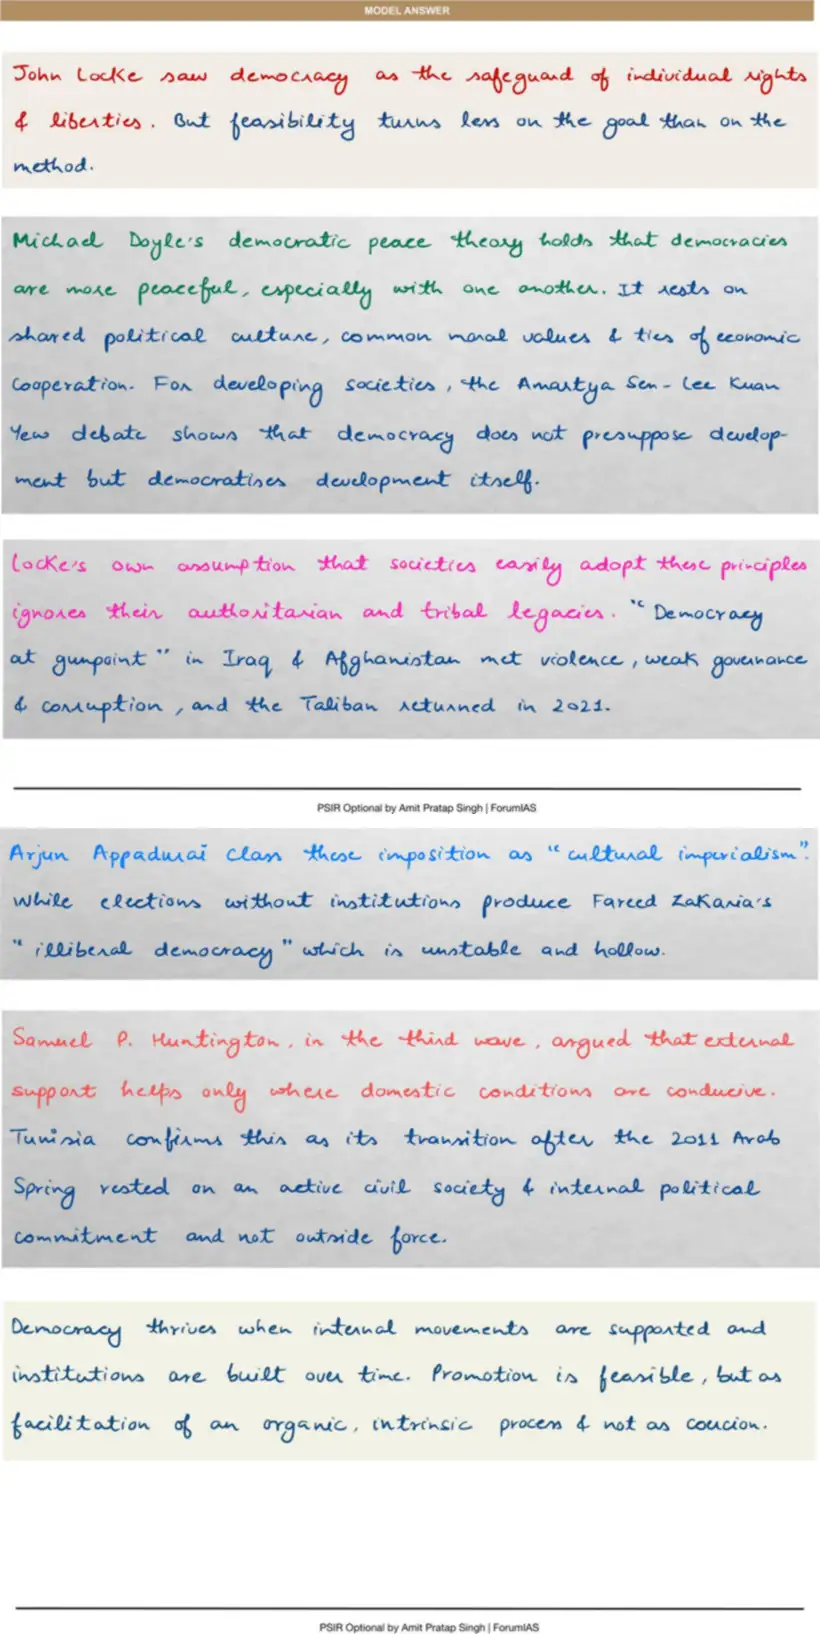 MODEL ANSWER
John Locke saw democracy as the safeguard of individual rights
& liberties. But feasibility turns less on the goal than on the
method.
Michael Doyle's democratic peace theory holds that democracies
are more peaceful, especially with one another. It rests on
shared political culture, common moral values & ties of economic
cooperation. For developing societies, the Amartya Sen - Lee Kuan
Yew debate shows that democracy does not presuppose develop-
ment but democratises development itself.
Locke's own assumption that societies easily adopt these principles
ignores their authoritarian and tribal legacies. "Democracy
at gunpoint" in Iraq & Afghanistan met violence, weak governance
& corruption, and the Taliban returned in 2021.
PSIR Optional by Amit Pratap Singh | ForumIAS
Arjun Appadurai class these imposition as "cultural imperialism".
While elections without institutions produce Fareed Zakaria's
"illiberal democracy" which is unstable and hollow.
Samuel P. Huntington, in the third wave, argued that external
support helps only where domestic conditions are conducive.
Tunisia confirms this as its transition after the 2011 Arab
Spring rested on an active civil society & internal political
commitment and not outside force.
Democracy thrives when internal movements are supported and
institutions are built over time. Promotion is feasible, but as
facilitation of an organic, intrinsic process & not as coercion.
PSIR Optional by Amit Pratap Singh | ForumIAS